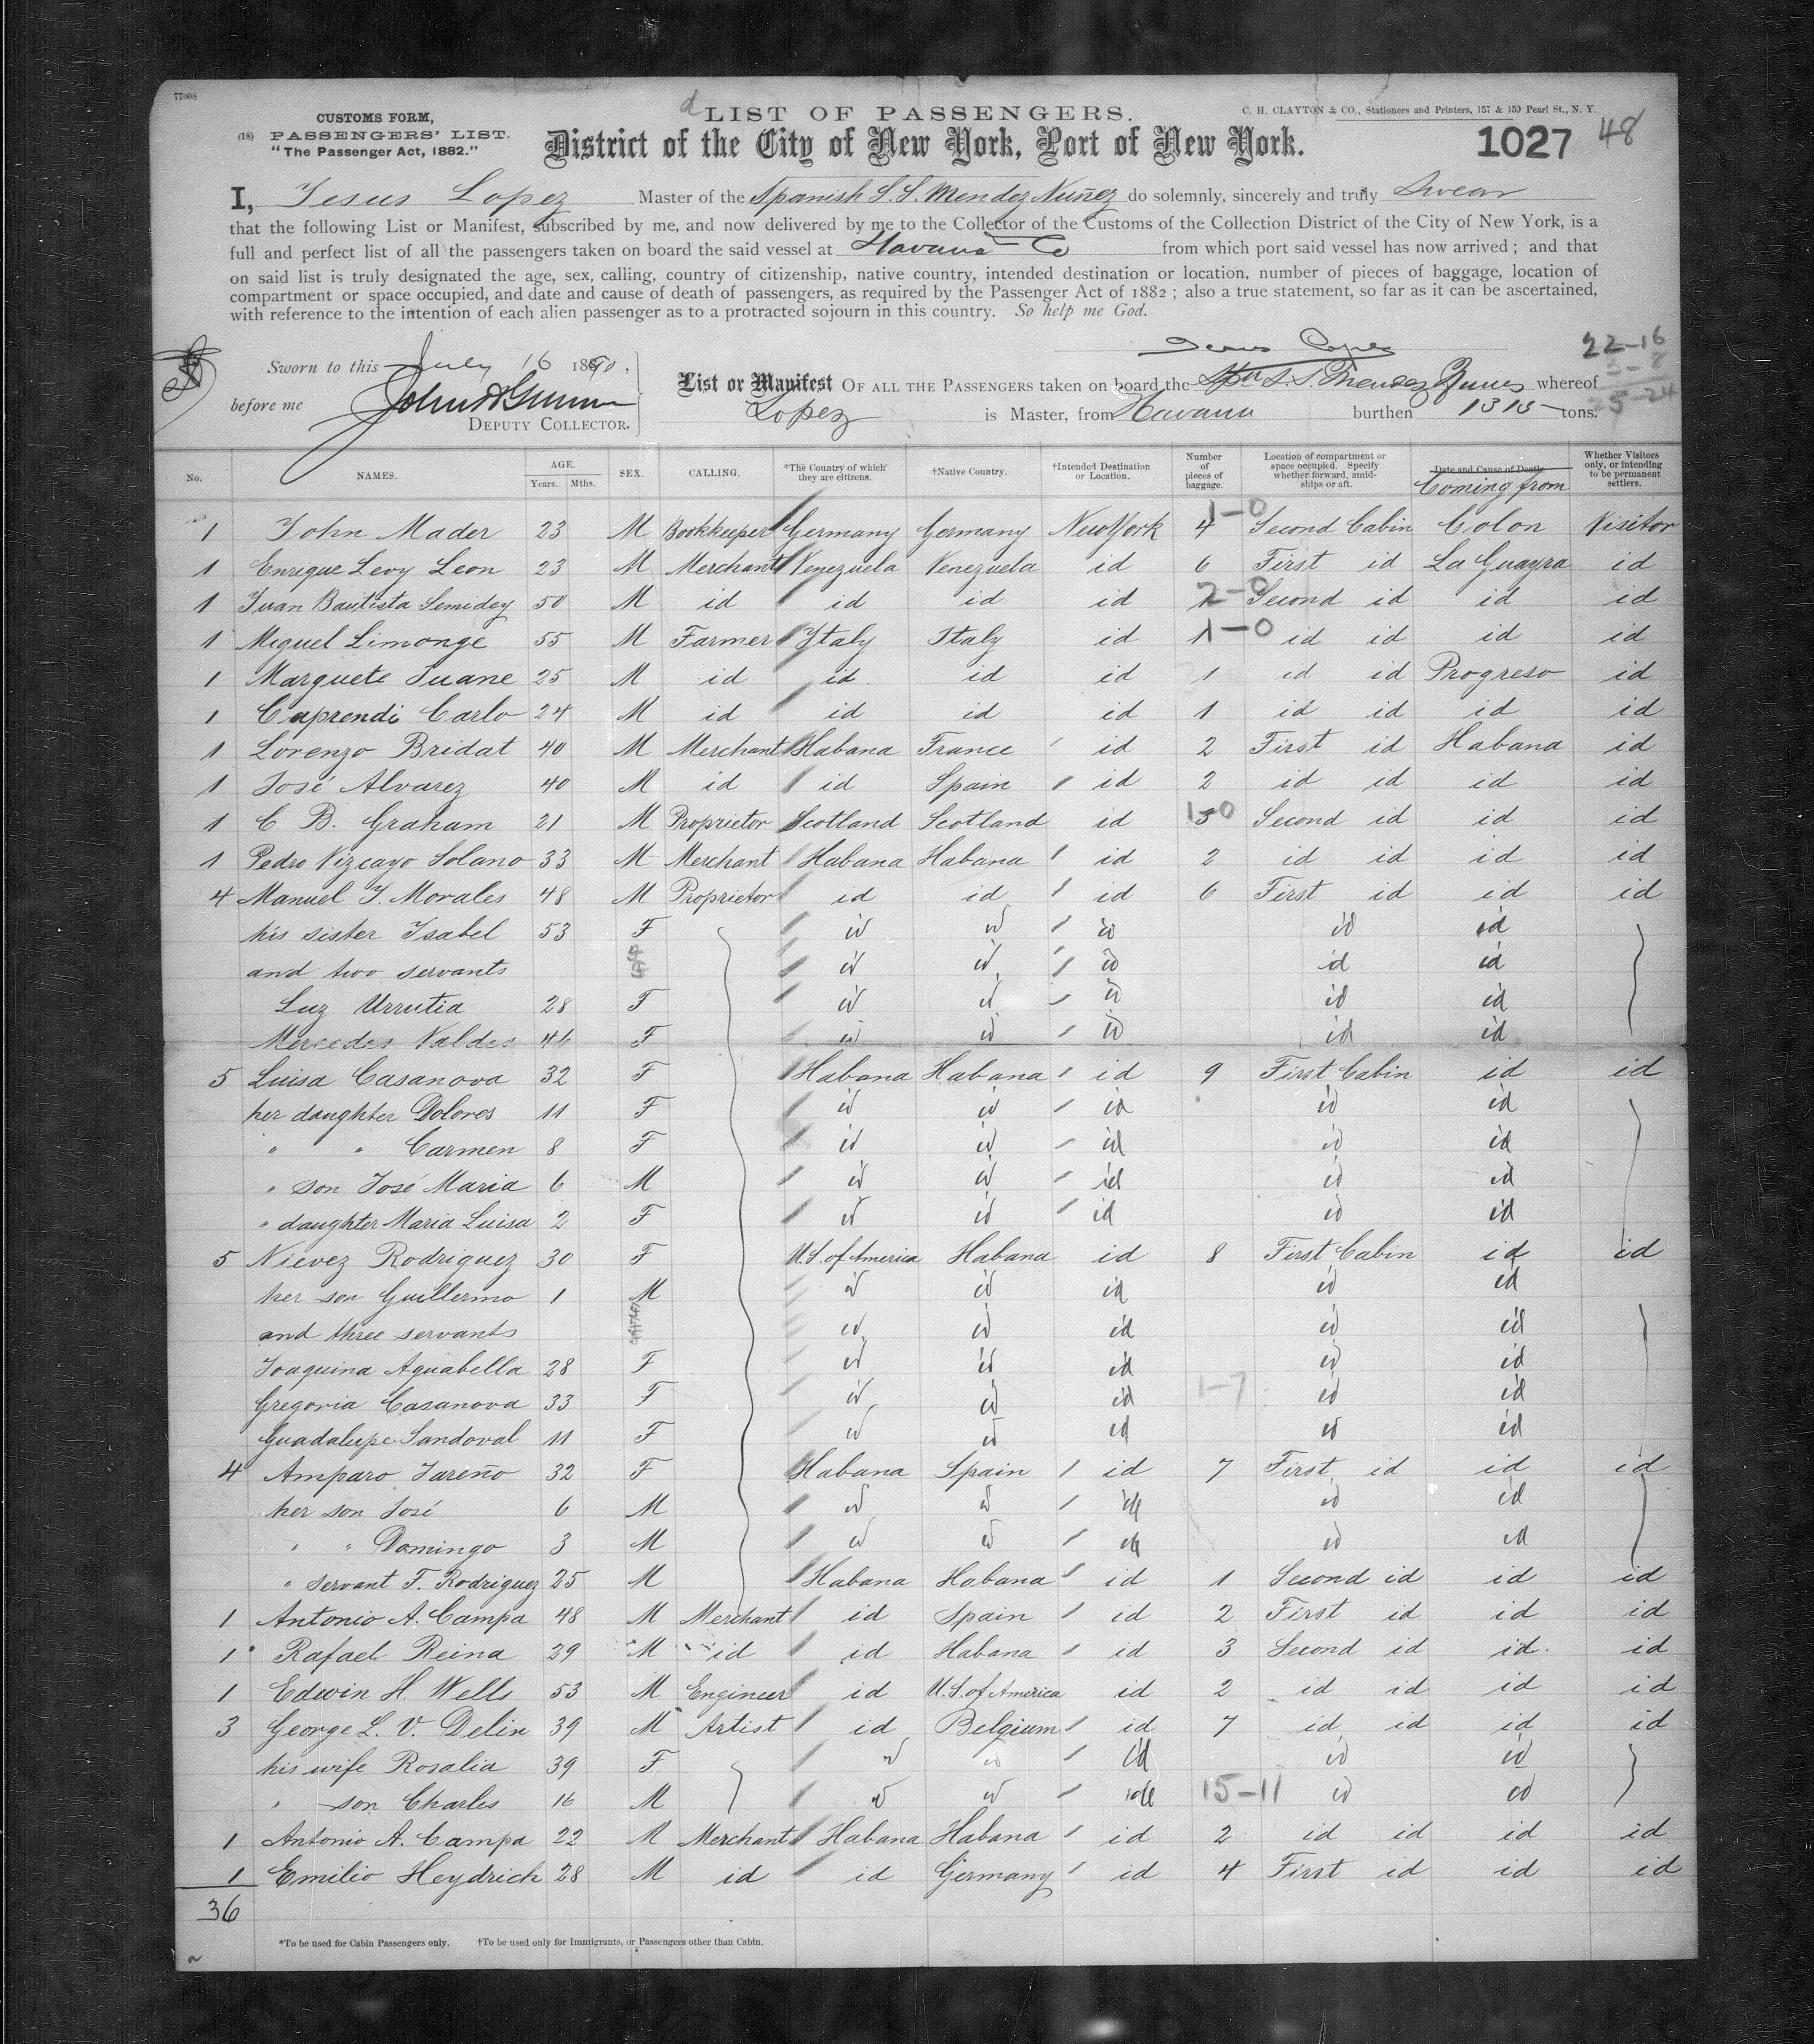 77008
CUSTOMS FORM,
(18) PASSENGERS' LIST.
"The Passenger Act, 1882."
d LIST OF PASSENGERS.
C. H. CLAYTON & CO., Stationers and Printers, 157 & 159 Pearl St., N. Y.
District of the City of New York, Port of New York.
1027 48
I, Jesus Lopez Master of the Spanish S. S. Mendez Nuñez do solemnly, sincerely and truly Swear
that the following List or Manifest, subscribed by me, and now delivered by me to the Collector of the Customs of the Collection District of the City of New York, is a
full and perfect list of all the passengers taken on board the said vessel at Havana from which port said vessel has now arrived ; and that
on said list is truly designated the age, sex, calling, country of citizenship, native country, intended destination or location, number of pieces of baggage, location of
compartment or space occupied, and date and cause of death of passengers, as required by the Passenger Act of 1882 ; also a true statement, so far as it can be ascertained,
with reference to the intention of each alien passenger as to a protracted sojourn in this country. So help me God.
Jesus Lopez
22-16
3-8
25-24
Sworn to this July 16 1890,
before me
DEPUTY COLLECTOR.
List or Manifest OF ALL THE PASSENGERS taken on board the S. S. Mendez Nunes whereof
Lopez is Master, from Havana burthen 1315 tons.
No. NAMES. AGE. Years. Mths. SEX. CALLING. *The Country of which they are citizens. †Native Country. †Intended Destination or Location. Number of pieces of baggage. Location of compartment or space occupied. Specify whether forward, amidships or aft. Date and Cause of Death. Coming from Whether Visitors only, or intending to be permanent settlers.
1 John Mader 23 M Bookkeeper Germany Germany New York 4 1-0 Second Cabin Colon Visitor
1 Enrique Levy Leon 23 M Merchant Venezuela Venezuela id 6 First id La Guayra id
1 Juan Bautista Semidey 50 M id id id id 2-0 Second id id id
1 Miguel Limonge 55 M Farmer Italy Italy id 1-0 id id id id
1 Marquete Juane 25 M id id id id 1 id id Progreso id
1 Caprendi Carlo 24 M id id id id 1 id id id id
1 Lorenzo Bridat 40 M Merchant Habana France id 2 First id Habana id
1 José Alvarez 40 M id id Spain id 2 id id id id
1 C B. Graham 21 M Proprietor Scotland Scotland id 1-0 Second id id id
1 Pedro Vizcayo Solano 33 M Merchant Habana Habana id 2 id id id id
4 Manuel J. Morales 48 M Proprietor id id id 6 First id id id
his sister Isabel 53 F id id id id id
and two servants id id id id id
Luz Urrutia 28 F id id id id id
Mercedes Valdes 46 F id id id id id
5 Luisa Casanova 32 F Habana Habana id 9 First Cabin id id
her daughter Dolores 11 F id id id id id
" " Carmen 8 F id id id id id
" son José Maria 6 M id id id id id
" daughter Maria Luisa 2 F id id id id id
5 Nievez Rodriguez 30 F U.S. of America Habana id 8 First Cabin id id
her son Guillermo 1 M id id id id id
and three servants id id id id id
Joaquina Aguabella 28 F id id id id id
Gregoria Casanova 33 F id id id 1-7 id id
Guadalupe Sandoval 11 F id id id id id
4 Amparo Jareño 32 F Habana Spain id 7 First id id id
her son José 6 M id id id id id
" " Domingo 3 M id id id id id
" servant F. Rodriguez 25 M Habana Habana id 1 Second id id id
1 Antonio A. Campa 48 M Merchant id Spain id 2 First id id id
1 Rafael Reina 29 M id id Habana id 3 Second id id id
1 Edwin H. Wells 53 M Engineer id U.S. of America id 2 id id id id
3 George L. V. Delin 39 M Artist id Belgium id 7 id id id id
his wife Rosalia 39 F id id id id id
" son Charles 16 M id id id 15-11 id id
1 Antonio A. Campa 22 M Merchant Habana Habana id 2 id id id id
1 Emilio Heydrich 28 M id id Germany id 4 First id id id
36
*To be used for Cabin Passengers only. †To be used only for Immigrants, or Passengers other than Cabin.